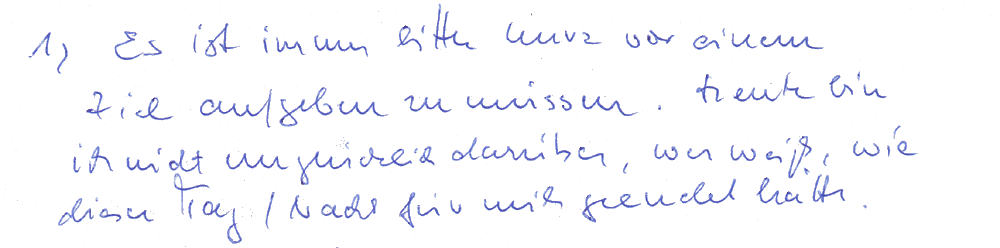 1) Es ist immer bitter kurz vor einem
Ziel aufgeben zu müssen. Heute bin
ich nicht unglücklich darüber, wer weiß, wie
dieser Tag / Nacht für mich geendet hätte.